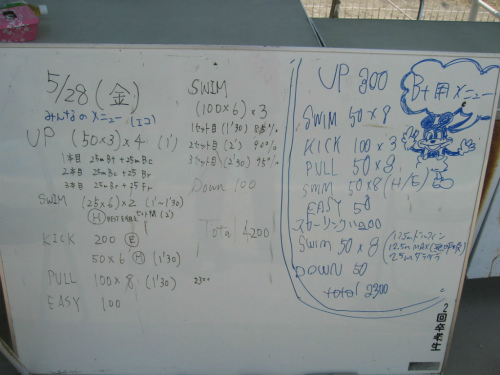 5/28 (金)
みんなのメニュー (エコ)
UP (50×3)×4 (1')
1本目 25m Bt + 25m Bc
2本目 25m Bc + 25 Br
3本目 25m Br + 25 Fr
SWIM (25×6)×2 (1'~1'30)
(2')
KICK 200 E
50×6 H (1'30)
PULL 100×8 (1'30) 2300
EASY 100
SWIM
(100×6)×3
1セット目 (1'30) 85%
2セット目 (2') 90%
3セット目 (2'30) 95%
Down 100
Total 4200
Bt用メニュー
UP 300
SWIM 50×8
KICK 100×3
PULL 50×8
SWIM 50×8 (H/E)
EASY 50
SWIM 50×8
12.5m MAX
25m
DOWN 50
total 2300
2回卒考生